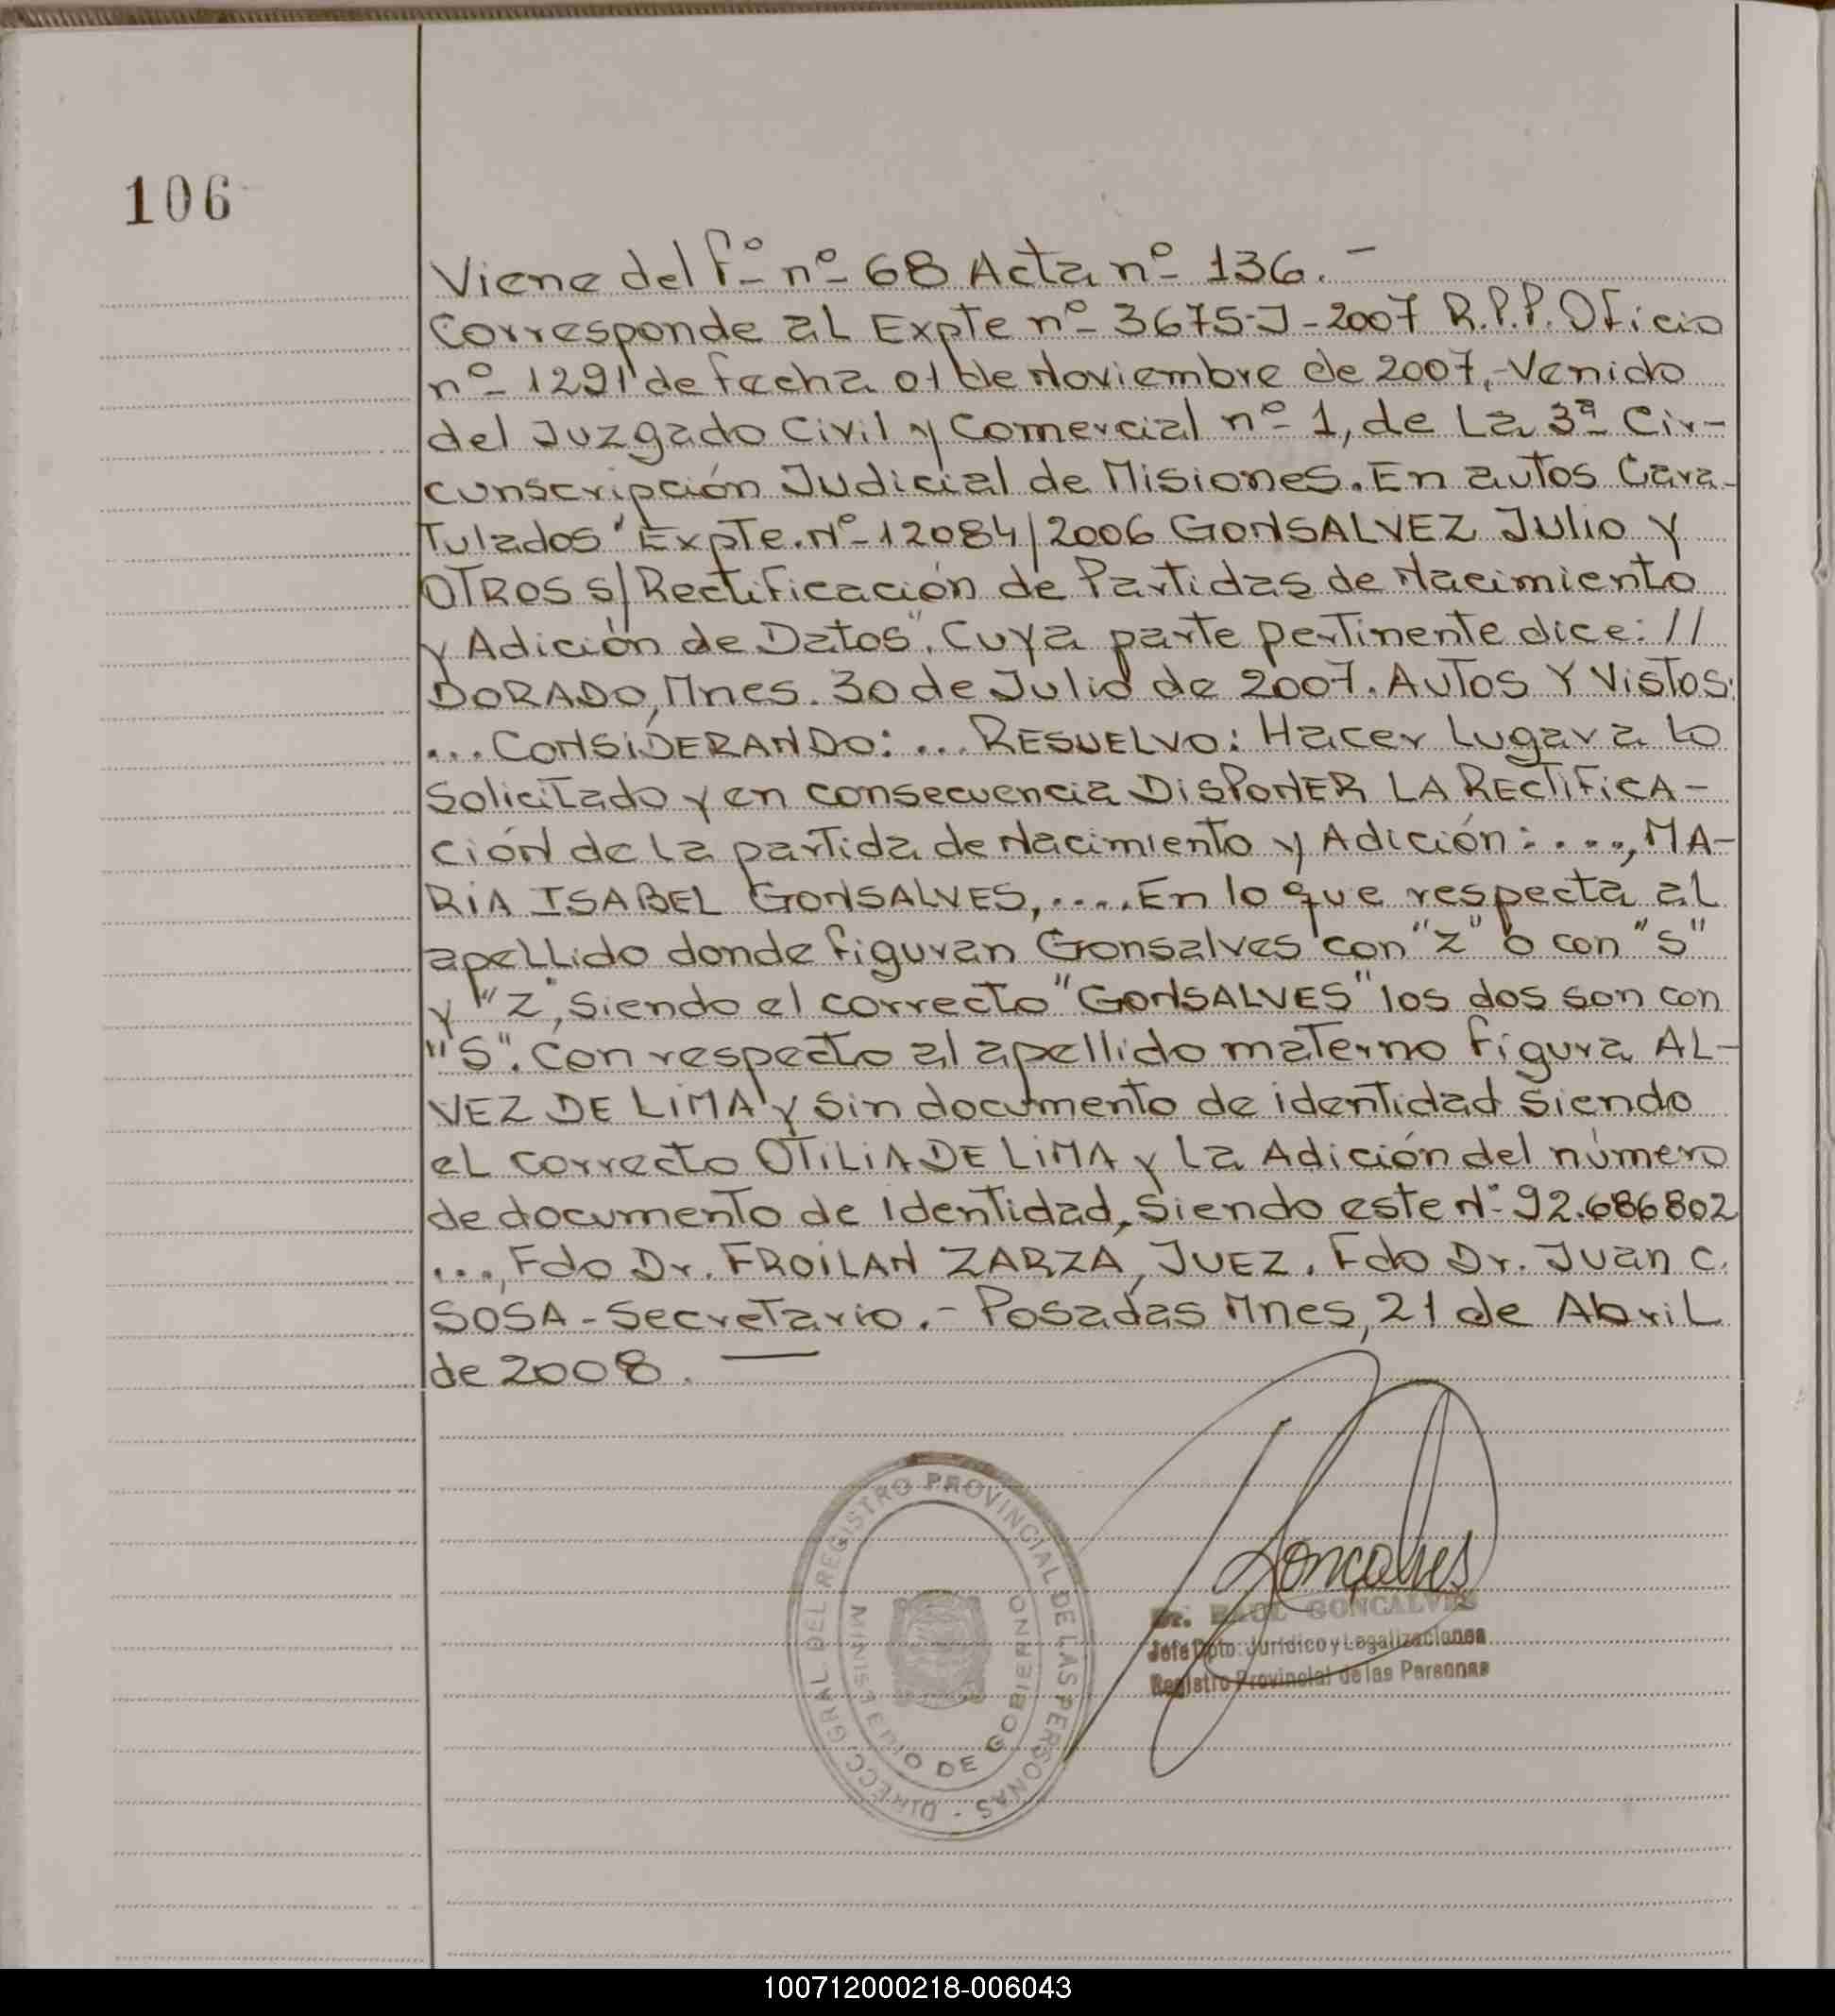 106
Viene del fº nº 68 Acta nº 136.-
Corresponde al Expte nº 3675-J-2007 R.P.P. Oficio
nº 1291 de fecha 01 de Noviembre de 2007,-Venido
del Juzgado Civil y Comercial nº 1, de La 3ª Cir-
cunscripción Judicial de Misiones. En autos Cara-
Tulados "Expte.Nº 12084/2006 GONSALVEZ Julio y
OTROS s/Rectificación de Partidas de Nacimiento
y Adición de Datos". Cuya parte pertinente dice: //
DORADO, Mnes. 30 de Julio de 2007. AUTOS Y VISTOS:
... CONSIDERANDO: ... RESUELVO: Hacer Lugar a Lo
Solicitado y en consecuencia DISPONER LA RECTIFICA-
CIÓN de La partida de Nacimiento y Adición: ...., MA-
RIA ISABEL GONSALVES, ..... En lo que respecta al
apellido donde figuran Gonsalves con "z" o con "s"
y "z", Siendo el correcto "GONSALVES" los dos son con
"S". Con respecto al apellido materno figura AL-
VEZ DE LIMA y sin documento de identidad siendo
el correcto OTILIA DE LIMA y La Adición del número
de documento de Identidad, Siendo este Nº 92.686802
..., Fdo Dr. FROILAN ZARZA, JUEZ. Fdo Dr. Juan C.
SOSA - Secretario.- Posadas Mnes, 21 de Abril
de 2008.
DIRECC. GRAL. DEL REGISTRO PROVINCIAL DE LAS PERSONAS -
MINISTERIO DE GOBIERNO
Goncalves
Dr. RAUL GONCALVES
Jefe Dpto. Jurídico y Legalizaciones
Registro Provincial de las Personas
100712000218-006043